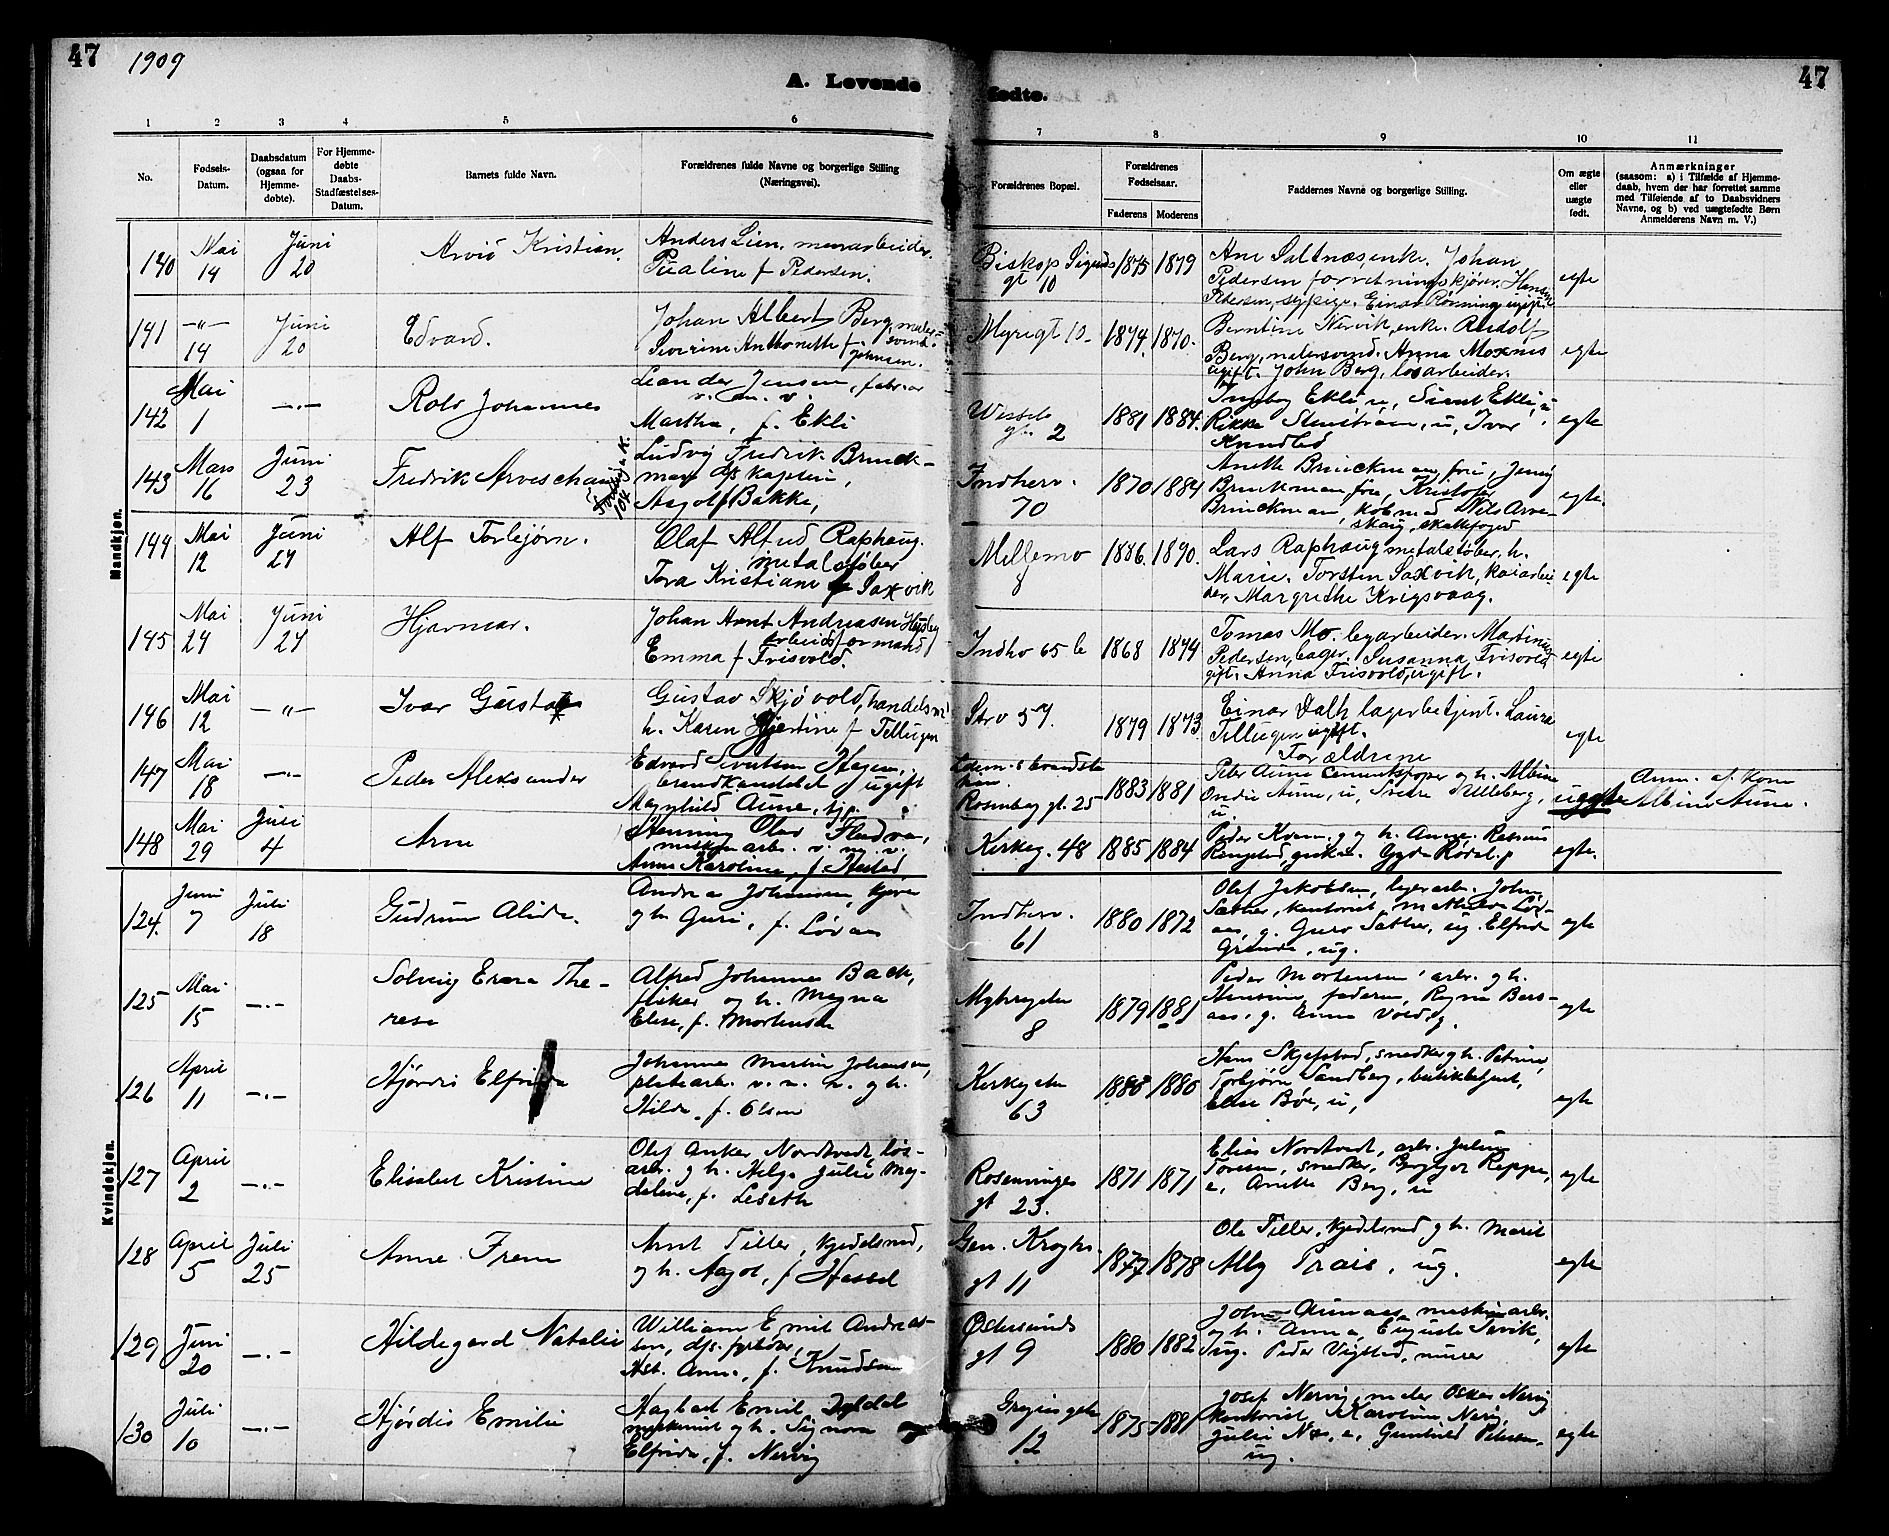 47 1909
A. Levende fødte.
47
1 2 3 4 5 6 7 8 9 10 11
No.
Fødsels-Datum.
Daabsdatum (ogsaa for Hjemme-døbte).
For Hjemme-døbte Daabs-Stadfæstelses-Datum.
Barnets fulde Navn.
Forældrenes fulde Navne og borgerlige Stilling (Næringsvei).
Forældrenes Bopæl.
Forældrenes Fødselsaar.
Faderens Moderens
Faddernes Navne og borgerlige Stilling.
Om ægte eller uægte født.
Anmærkninger (saasom: a) i Tilfælde af Hjemme-daab, hvem der har forrettet samme med Tilføiende af to Daabsvidners Navne, og b) ved uægtefødte Børn Anmelderens Navn m. V.)
Mandkjøn.
140 Mai 14 Juni 20 Arvid Kristian.
Anders Lien, murarbeider.
Paaline f Pedersen.
Biskop Sigurds gt 10 1875 1879
Ane Saltnes, enke. Johan
Pedersen forretningskjører.
Pedersen, sypige. Einar Rønning ugift.
egte
141 -"- 14 Juni 20 Edvard.
Johan Albert Berg, maler-svend.
Severine Anthonette f. Johnsen.
Myrigt 10 1874. 1870.
Berntine Nervik, enke. Rudolf
Berg, malersvend. Anna Moxnes
ugift. John Berg, løsarbeider.
egte
142 Mai 1 -"- Rolv Johannes
Leander Jensen, fabr. ar
v. m. v.
Martha, f. Ekli
Wessels gt. 2 1881 1884.
Ingeborg Ekli u, Sivert Ekli, u,
Rikke Stenstrøm, u, Ivar
egte
143 Mars 16 Juni 23 Fredrik Arveschaug
Ludvig Fredrik Brinck-
man d/s kaptein,
Aagot f Bakke,
Indherv. 70 1870 1884
Anette Brinckman, frue, Jenny
Brinckman frue, Kristofer
Brinckman, købmed Nils Arve-
skaug, skattefoged
egte.
144 Mai 12 Juni 24 Alf Torbjørn.
Olaf Alfred Raphaug.
metalstøber
Tora Kristiane f Saxvik
Mellemv 8 1886. 1890.
Lars Raphaug metalstøber, h.
Marie. Torsten Saxvik, kaiarbei
der, Margrethe Krigsvaag.
egte
145 Mai 24 Juni 24 Hjarmar.
Johan Arnt Andreasen Husby
arbeidsformand
Emma f Frisvold.
Indhv 65 b 1868 1874
Tomas Mo. byarbeider. Martinus
Pedersen, bager. Susanna Frisvold
gift. Anna Frisvold, ugift.
egte
146 Mai 12 -"- Ivar Gustav
Gustav Skjøvold, handelsm
h. Karen Hjertine f Tellugen
Strv 57. 1879 1873
Einar Dalh lagerbetjent. Laura
Tellugen ugift.
Forældrene
egte
147 Mai 18 -"- Peder Aleksander
Edvard Sivertsen Hagen,
brandkonstabel ugift
Magnhild Aune, tj.p.
Rosenborg gt. 25 1883 1881
Peter Aune cementstøper og h. Albine
Ondin Aune, u, Sverre Ulleberg,
u.
uegte
Anm. af Kone
Albine Aune.
148 Mai 29 Juli 4 Arne
Henning Olav Fladvad,
maskinarb. v. m. v.
Anne Karoline, f. Hustad
Kirkeg. 48 1885 1884
Peder Kvam, g og h. Anne, Rasmus
Ringstad, Gyda Rødal. p
egte.
Kvindekjøn.
124. Juni 7 Juli 18 Gudrun Alida.
Andreas Johansen, kjører
og h. Guri, f. Løvaas
Indherv. 61 1880 1872
Olaf Jakobsen, lagerarb. John
Sæther, kontorist, Mathilda Løv-
aas, g. Guro Sæther, ug. Elfrida
Grande, ug.
egte
125 Mai 15 -"- Solveig Erma The-
rese
Alfred Johannes Bach,
fisker og h. Magna
Elise, f. Mortensen
8 1879 1881
Peder Mortensen, arb. og h.
Hansine, faderen, Ragna Bers-
aas, g. Anna Vold, g.
egte
126 April 11 -"- Hjørdis Elfrida
Johannes Martin Johansen,
platearb. v. m. v. og h.
Hilda, f. Olsen
Kirkegaten 63 1880 1880
Hans Skjefstad, snedker og h. Petrine,
Torbjørn Sandberg, butikbetjent,
Elise Bøe, u,
egte
127 April 2 -"- Elisabet Kristine
Olaf Anker Nordtvedt, løs-
arb. og h. Helga Julie Mag-
dalene, f. Leseth
Roseninges gt 23. 1871 1871
Elias Nordtvedt, arb. Julius
Toresen, snedker, Bergljot Reppe,
u, Anette Berg, u
egte
128 April 5 Juli 25 Anne Frem
Arnt Tiller, kjedelsmed,
og h. Aagot, f. Hassel
Gen. Kroghs. gt 11 1877 1878
Ole Tiller, kjedelsmed og h. Marit
Ally Prais, ug.
egte
129 Juni 20 -"- Hildegard Natalie
William Emil Andreas-
sen, d/s. fyrbøder,
Hst. Anna, f. Knudsen
Østersunds gt 9 1880 1882
John Aunaas maskinarb.
og h. Anna, Auguste Tøvik,
ug. Peder Vigstad, murer
egte
130 Juli 10 -"- Hjørdis Emilie
Hagbart Emil Dybdal
maskinist og h. Signora
Elfrida, f. Nervig
12 1875 1881
Josef Nervig, maler Oskar Nervig
kontorist, Karoline Nervig,
Julie Næs, e, Gunhild Petersen,
ug.
egte